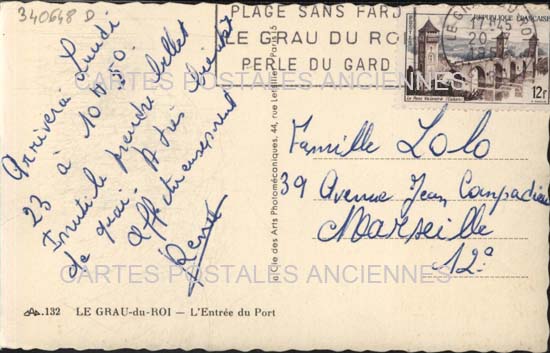 340648 D
PLAGE SANS FARD
LE GRAU DU ROI
PERLE DU GARD
LE GRAU DU ROI
20-
RÉPUBLIQUE FRANÇAISE
12f
Le Pont Valentré (Cahors)
Arriverai Lundi
23 à 10H50.
Inutile prendre billet
de quai. A très bientôt
Affectueusement
Famille Lolo
39 Avenue Jean Compadieu
Marseille
12e
CARTES POSTALES ANCIENNES
CARTES POSTALES ANCIENNES
Cie des Arts Photomécaniques, 44, rue Letellier, Paris-15
132 LE GRAU-du-ROI — L'Entrée du Port